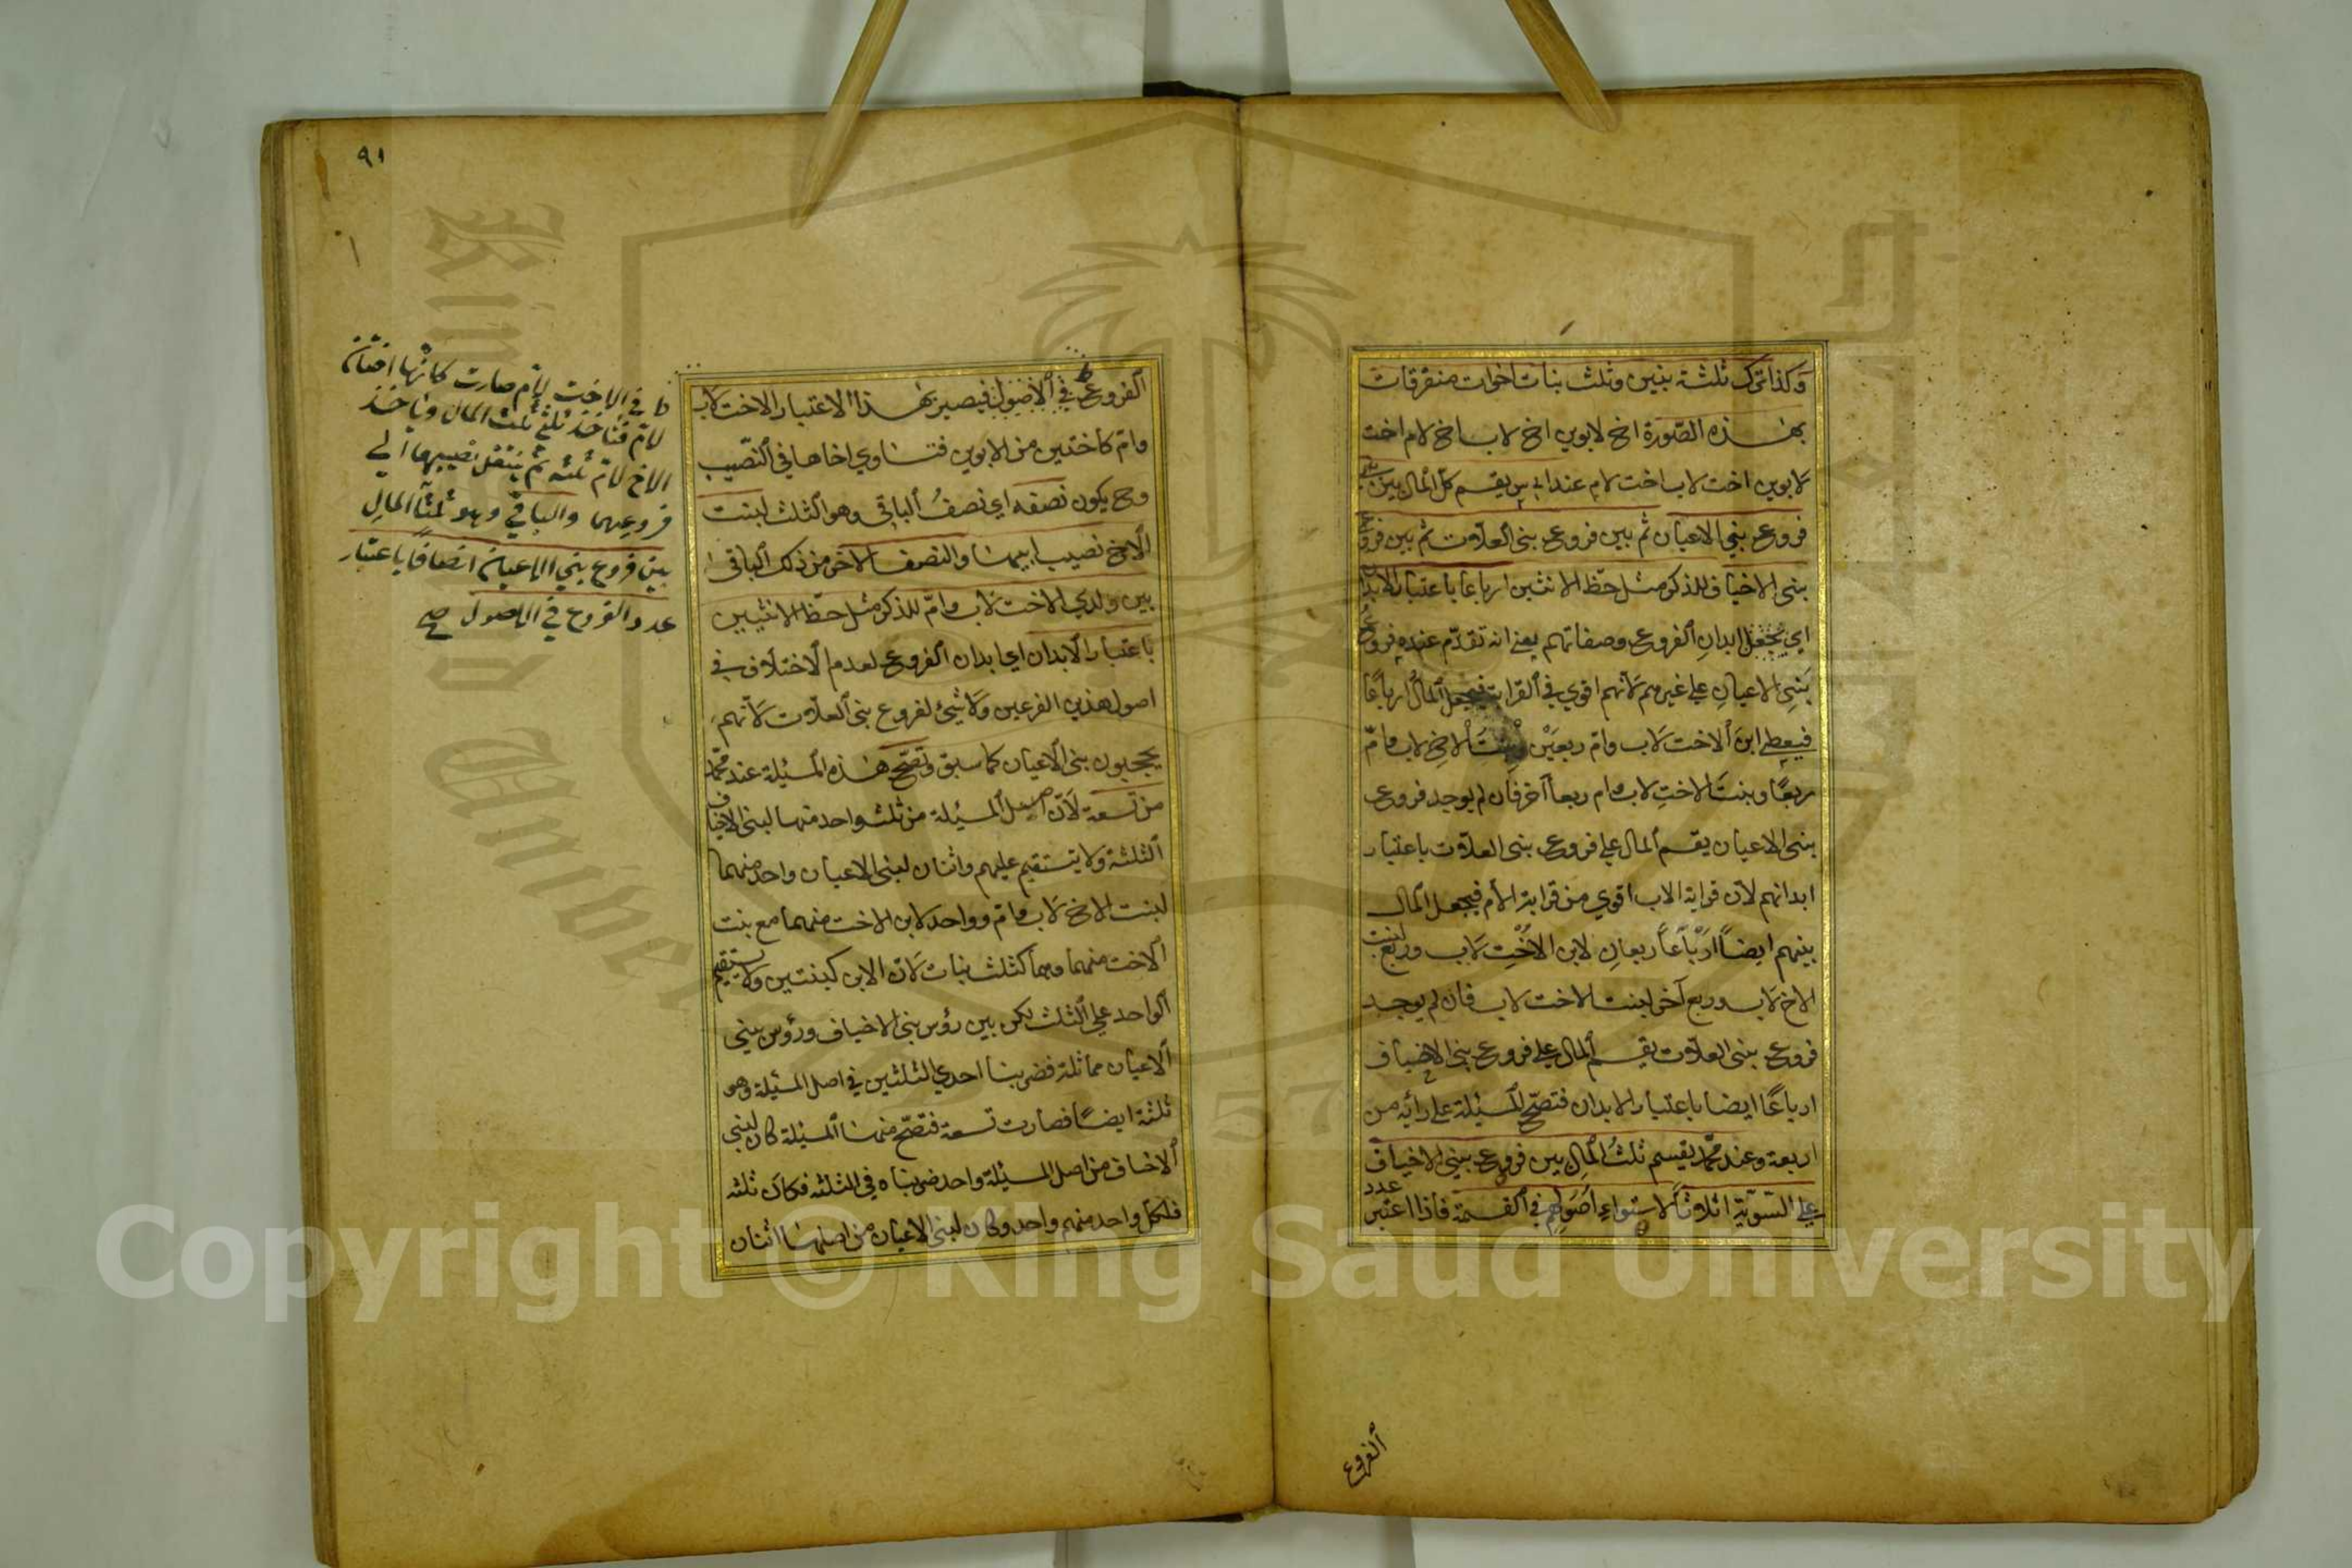 وكذا ترك ثلثة بنين وثلث بنات اخوات متفرقات
بهذه الصورة اخ لابوين اخ لاب اخ لام اخت
لابوين اخت لاب اخت لام عند ابي س يقسم كل المال بين
فروع بني الاعيان ثم بين فروع بني العلات ثم بين فروع
بني الاخياف للذكر مثل حظ الانثيين ارباعا باعتبار الابدان
اي يجعل ابدان الفروع وصفاتهم يعني انه تقدم عنده فروع
بني الاعيان علي غيرهم لانهم اقوي في القرابة فيجعل المال ارباعا
فيعطي ابن الاخت لاب وام ربعين وبنت الاخ لاب وام
ربعا وبنت الاخت لاب وام ربعا آخر فان لم يوجد فروع
بني الاعيان يقسم المال علي فروع بني العلات باعتبار
ابدانهم لان قرابة الاب اقوي من قرابة الام فيجعل المال
بينهم ايضا ارباعا ربعان لابن الاخت لاب وربع لبنت
الاخ لاب وربع آخر لبنت الاخت لاب فان لم يوجد
فروع بني العلات يقسم المال علي فروع بني الاخياف
ارباعا ايضا باعتبار الابدان فتصح المسئلة علي رأيه من
اربعة وعند محمد يقسم ثلث المال بين فروع بني الاخياف
علي السوية اثلاثا لاستواء اصولهم في القسمة فاذا اعتبر عدد
الفروع
٩١
الفروع في الاصول فيصير بهذا الاعتبار الاخت لاب
وام كاختين من الابوين فتساوي اخاها في النصيب
وح يكون نصفه اي نصف الباقي وهو الثلث لبنت
الاخ نصيب ابيها والنصف الآخر من ذلك الباقي
بين ولدي الاخت لاب وام للذكر مثل حظ الانثيين
باعتبار الابدان اي ابدان الفروع لعدم الاختلاف في
اصول هذين الفرعين ولا شيئ لفروع بني العلات لانهم
يحجبون بني الاعيان كما سبق وتصح هذه المسئلة عند محمد
من تسعة لان اصل المسئلة من ثلثة واحد منها لبني الاخياف
الثلثة ولا يستقيم عليهم واثنان لبني الاعيان واحد منهما
لبنت الاخ لاب وام وواحد لابن الاخت منهما مع بنت
الاخت منهما وهما كثلث بنات لان الابن كبنتين ولا يستقيم
الواحد علي الثلث لكن بين رؤس بني الاخياف ورؤس بني
الاعيان مماثلة فضربنا احدي الثلثين في اصل المسئلة وهو
ثلثة ايضا فصارت تسعة فتصح منها المسئلة كان لبني
الاخياف من اصل المسئلة واحد ضربناه في الثلثه فكان ثلثه
فلكل واحد منهم واحد وكان لبني الاعيان من اصلها اثنان
ط في الاخت لام صارت كانها اختان
لام فتأخذ ثلثي ثلث المال ويأخذ
الاخ لام ثلثه ثم ينتقل نصيبهما الي
فروعهما والباقي وهو ثلثا المال
بين فروع بني الاعيان انصافا باعتبار
عدد الفروع في الاصول صح
Copyright © King Saud University